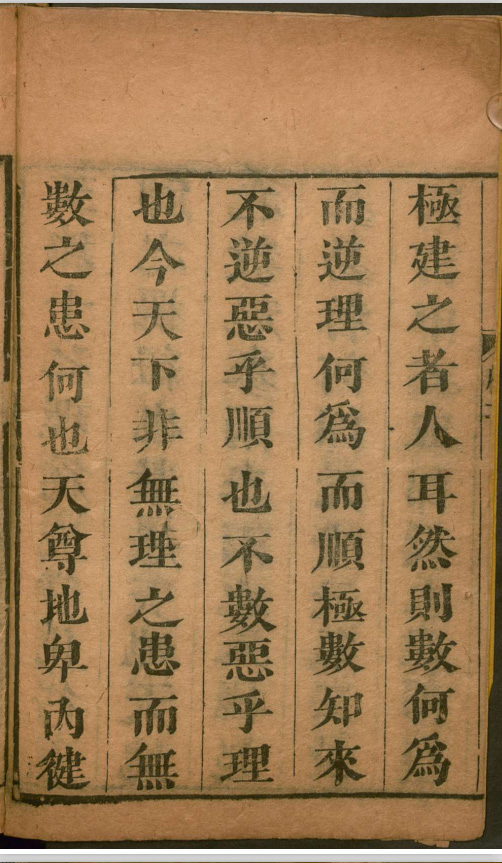 極建之者人耳然則數何爲
而逆理何爲而順極數知來
不逆惡乎順也不數惡乎理
也今天下非無理之患而無
數之患何也天尊地卑內健